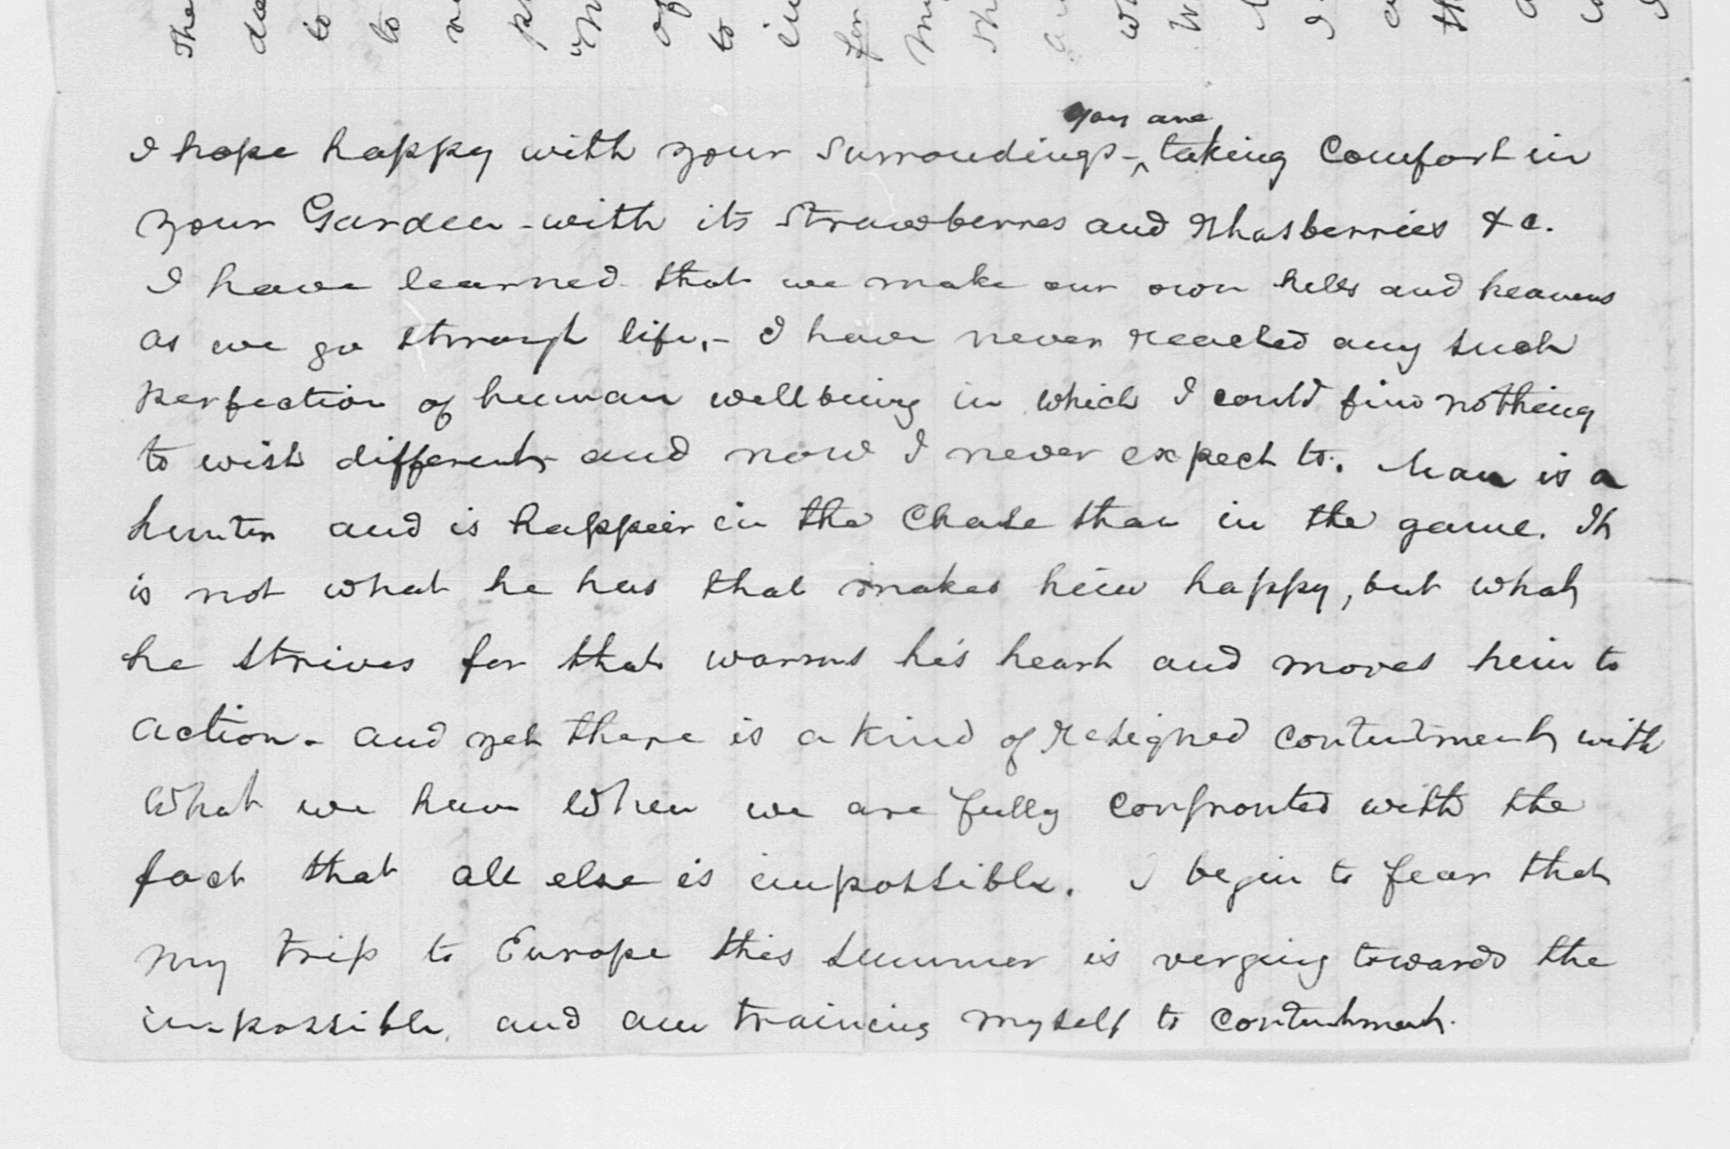 you are
I hope happy with your surroundings - ^ taking Comfort in
your Garden - with its strawberres and Rhasberries & c.
I have learned that we make our own hells and heavens
as we go through life, - I have never reached any such
perfection of human wellbeing in which I could find nothing
to wish different and now I never expect to. Man is a
hunter and is happier in the Chase than in the game. It
is not what he has that makes him happy, but what
he strives for that warms his heart and moves him to
action - and yet there is a kind of resigned contentment with
what we have when we are fully confronted with the
fact that all else is impossible. I begin to fear that
my trip to Europe this summer is verging towards the
impossible, and am training myself to contentment.